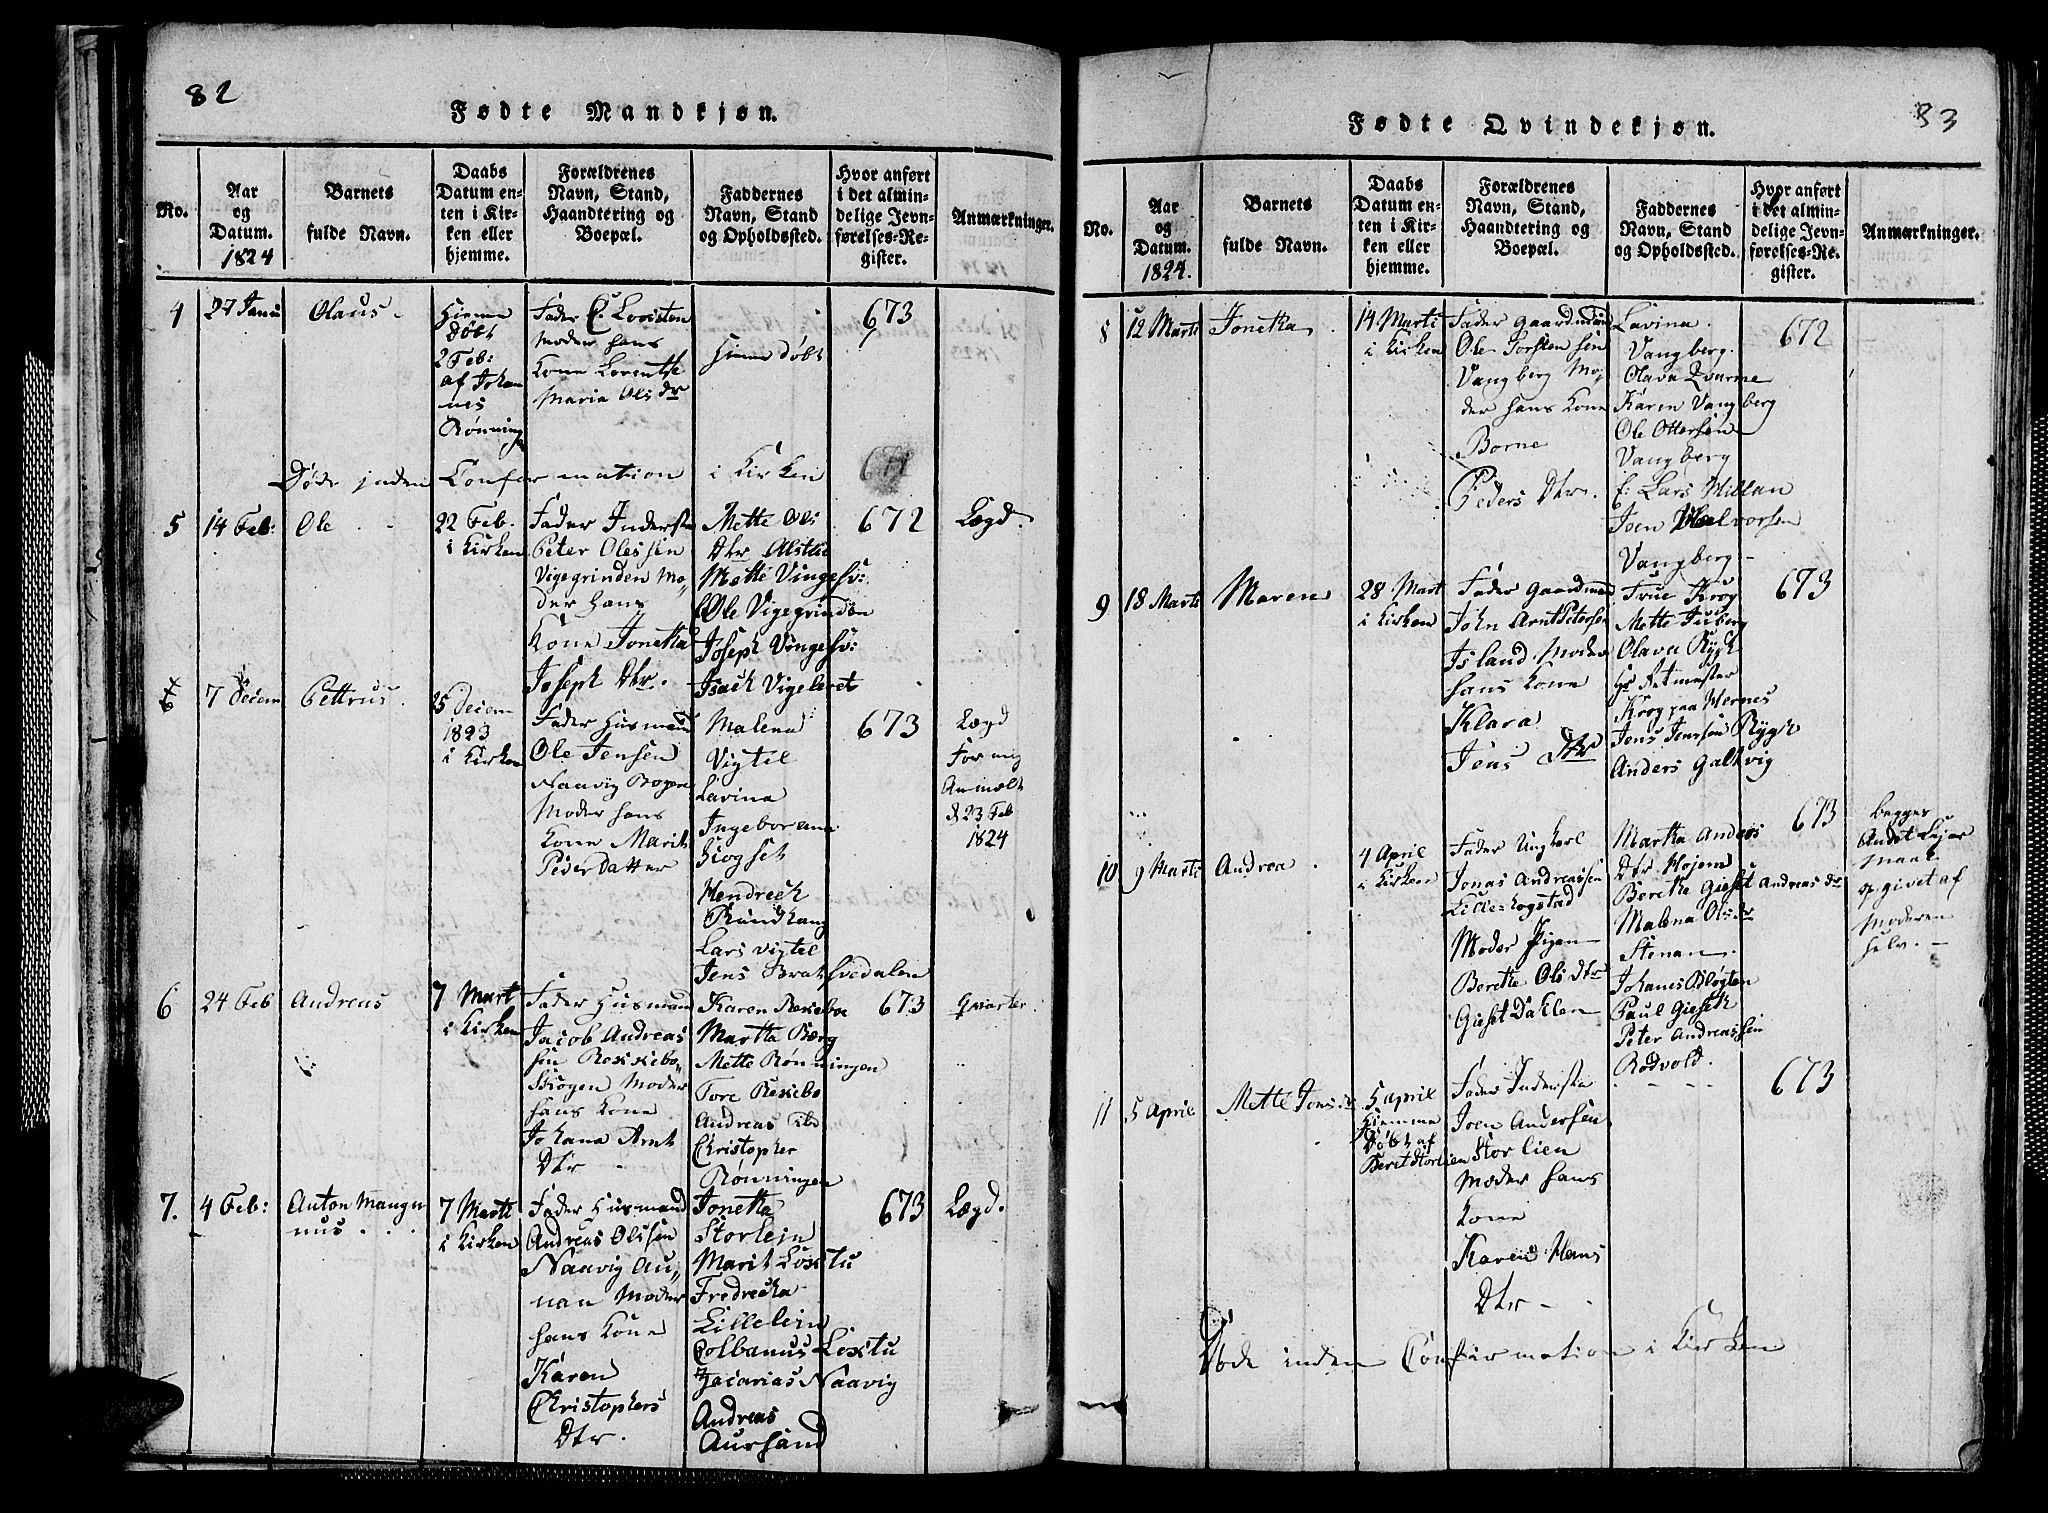 82
Fødte Mandkjøn.
No.
Aar
og
Datum.
1824
Barnets
fulde Navn.
Daabs
Datum en-
ten i Kir-
ken eller
hjemme.
Forældrenes
Navn, Stand,
Haandtering og
Boepæl.
Faddernes
Navn, Stand
og Opholdssted.
Hvor anført
i det almin-
delige Jevn-
førelses-Re-
gister.
Anmærkninger.
4
27 Janu
Olaus.
Hiemme
Døbt
2 Feb:
af Johan
nes
Rønning
Fader
Moder hans
Kone Lorentse
Maria Ols Dr
Hieme døbt
673
Døde inden Confermation i Kirken
5
14 Feb:
Ole
22 Feb.
i Kirken
Fader Inderste
Peter Olessen
Vigegrinden Mo„
der hans
Kone Jonetka
Joseph Dtr.
Mette Ols
Dtr Alstlie
Mette Vingesv:
Ole Vigegrinden
Joseph Vingesv:
Isach Vigeleret
672
Lægd.
6
7 Decem
Pettrus.
25 Decem
1823
i Kirken
Fader Husmand
Ole Jensen
Naavig
Moder hans
Kone Marit
Peder Datter
Malena
Vigtil
Lavina
Ingeborana
Giogset
Hendrech
Lars Vigtil
Jens Bratsvedalen
673
Lægd
For mig
Anmelt
d 23 Feb
1824
6
24 Feb
Andreas
7 Mart
i Kirken
Fader Husmand
Jacob Andreas
sen Rexxebo„
Skogen Moder
hans Kone
Johana Arnt
Dtr
Karen Rexebo
Martha Berg
Mette Rønningen
Tore Rexebo
Andreas ibd
Christopher
Rønningen
673
Qvarter
7.
4 Feb:
Anton Mangn
nus.
7 Marti
i Kirken
Fader Husmand
Andreas Olssen
Naavig Au„
nan Moder
hans Kone
Karen
Christophers
Dtr.
Jonetka
Storlein
Marit Loxtu
Fredrecka
Lillelein
Colbanus Loxtu
Zacarias Naavig
Andreas
Aursand
673
Lægd.
83
Fødte Qvindekjøn.
No.
Aar
og
Datum.
1824.
Barnets
fulde Navn.
Daabs
Datum en-
ten i Kir-
ken eller
hjemme.
Forældrenes
Navn, Stand,
Haandtering og
Boepæl.
Faddernes
Navn, Stand
og Opholdssted.
Hvor anført
i det almin-
delige Jevn-
førelses-Re-
gister.
Anmærkninger.
8
12 Marti
Jonetka.
14 Marti
i Kirken
Fader Gaardman
Ole Torsten sen
Vangberg Mo„
der hans Kone
Borne
Peders Dtr.
Lavina
Vangberg.
Olava
Karen Vangberg
Ole Ottersen
Vangberg
Lars Hillan
Joen Halvorsen
Vangberg
672
9
18 Marti
Maren
28 Mart
i Kirken
Fader Gaardmand
John Arnt Petersen
Island. Moder
hans Kone
Klara
Jens Dtr
Frue Krog
Mette Juberg
Olava Rygh
Krog paa Wernes
Jens Jenssen Rygh
Anders Galtvig
673
10
9 Marti
Andrea
4 April
i Kirken
Fader Ungkarl
Jonas Andreassen
Lille-hogstad
Moder Pigen
Beretke Ols Dtr
Gieset Dahlen
Martha Anders
Dtr. Hojem
Beretke Gieset Andreas Dr
Malena Ols dr
Stenan
Johanes Bløgten
Paul Gieseth
Peter Andreassen
Rødvold.
673
begges
Andet Lejer
maal
opgivet af
Moderen
selv.
11
5 April
Mette Jons dr
5 April
Hiemme
Døbt af
Berit Storlien
Fader Inderste
Joen Andersen
Storlien
Moder hans
Kone
Karen Hans
Dtr
673
Døde inden Confirmation i Kirken